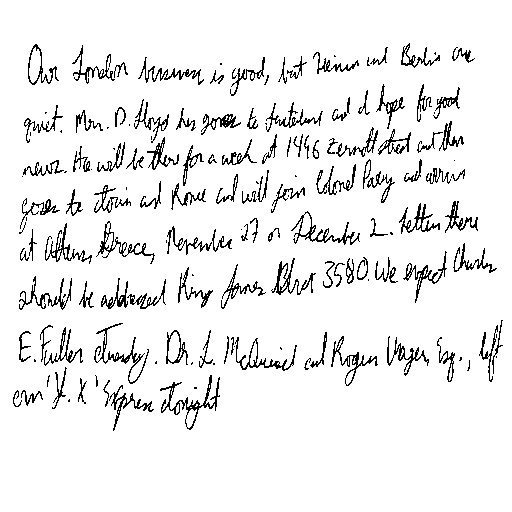 Our London business is good, but Vienna and Berlin are
quiet. Mr. D. Lloyd has gone to Switzerland and I hope for good
news. He will be there for a week at 1496 Zermott Street and then
goes to Turin and Rome and will join Colonel Parry and arrive
at Athens, Greece, November 27 or December 2. Letters there
should be addressed King James Blvd 3580. We expect Charles
E. Fuller Tuesday. Dr. L. McQuaid and Roger Unger, Esq., left
on 'Y. X' Express tonight